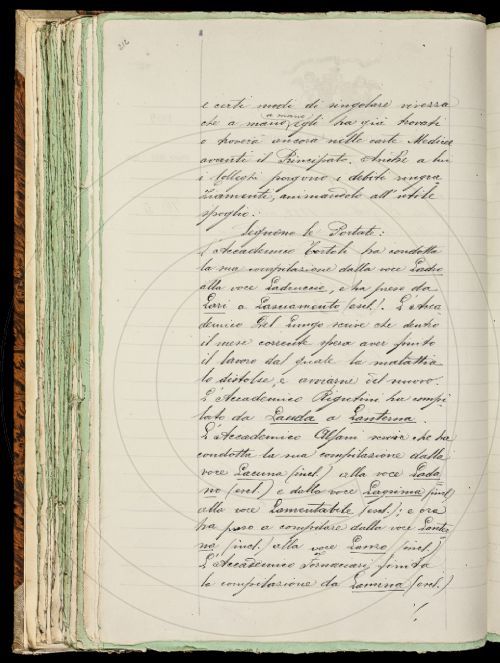 e certi modi di singolare vivezza
che a mano a mano egli ha già trovati
e troverà ancora nelle carte Medicee
avanti il Principato. Anche a lui
i Colleghi porgono i debiti ringra
ziamenti, animandolo all'utile
spoglio.
Seguono le Portate:
L'Accademico Tortoli ha condotto
la sua compilazione dalla voce Ladro
alla voce Ladruccio, e ha preso da
Lari a Lasciamento (escl.). L'Acca
demico Del Lungo scrive che dentro
il mese corrente spera aver finito
il lavoro dal quale la malattia
lo distolse, e avviarne del nuovo.
L'Accademico Rigutini ha compi
lato da Lauda a Lanterna.
L'Accademico Alfani scrive che ha
condotta la sua compilazione dalla
voce Lacuna (incl.) alla voce Lada
no (escl.) e dalla voce Lagrima (incl.)
alla voce Lamentabile (escl.); e ora
ha preso a compilare dalla voce Lanter
na (incl.) alla voce (incl.)
L'Accademico Tornaciari
la compilazione da (escl.)